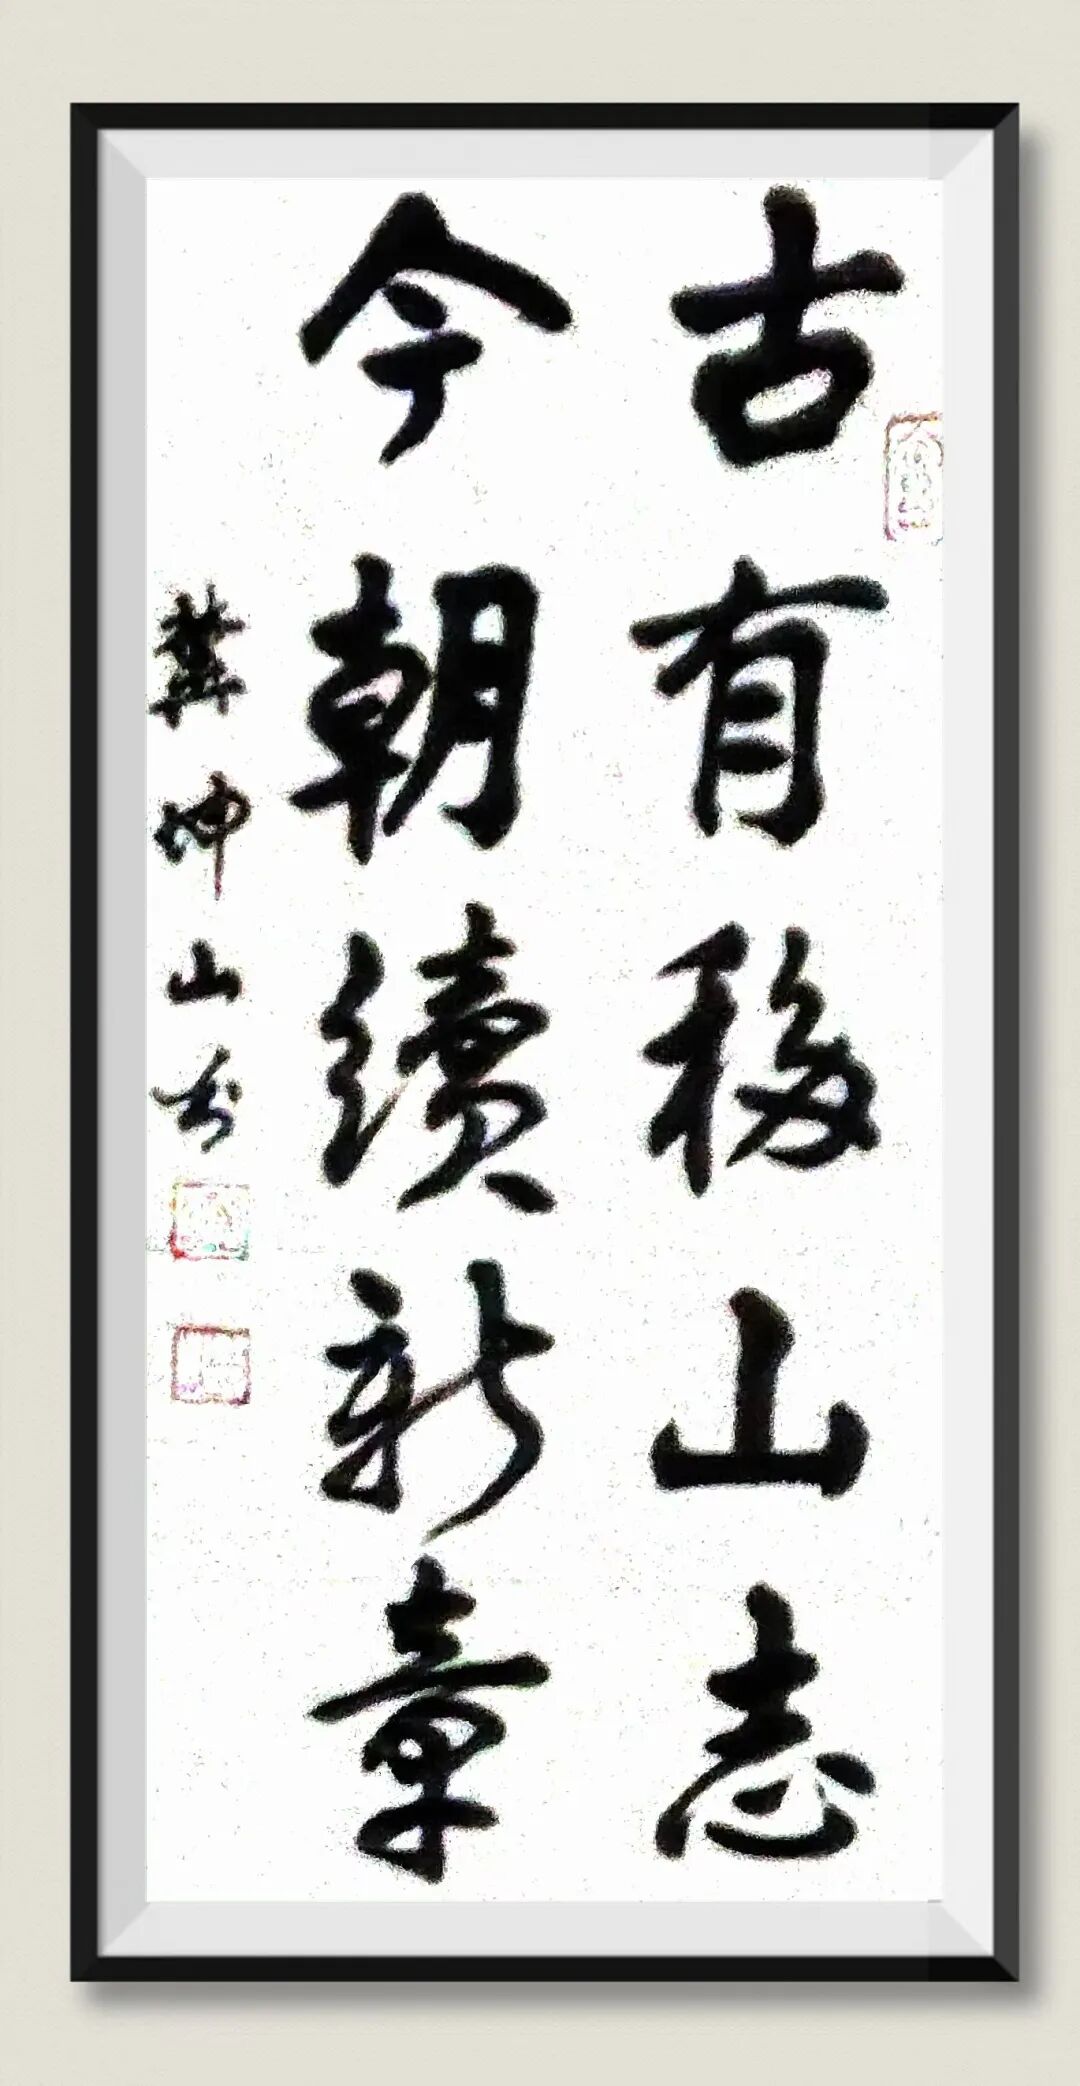 古有移山志
今朝續新章
龚坤山书